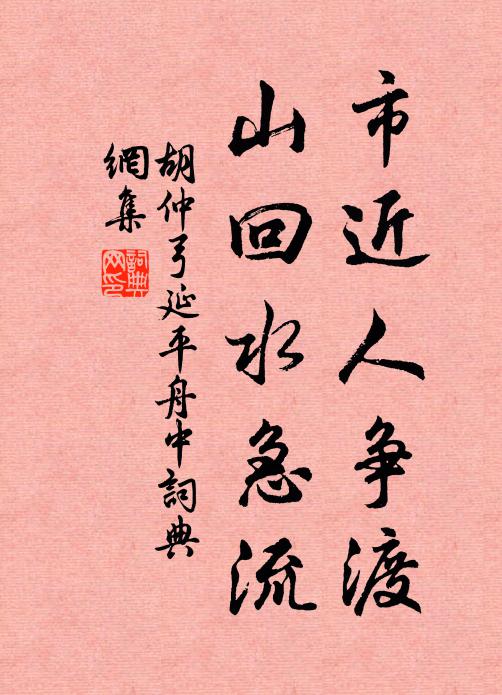 市近人争渡
山回水急流
胡仲弓延平舟中詞典
網集
詞典
网印